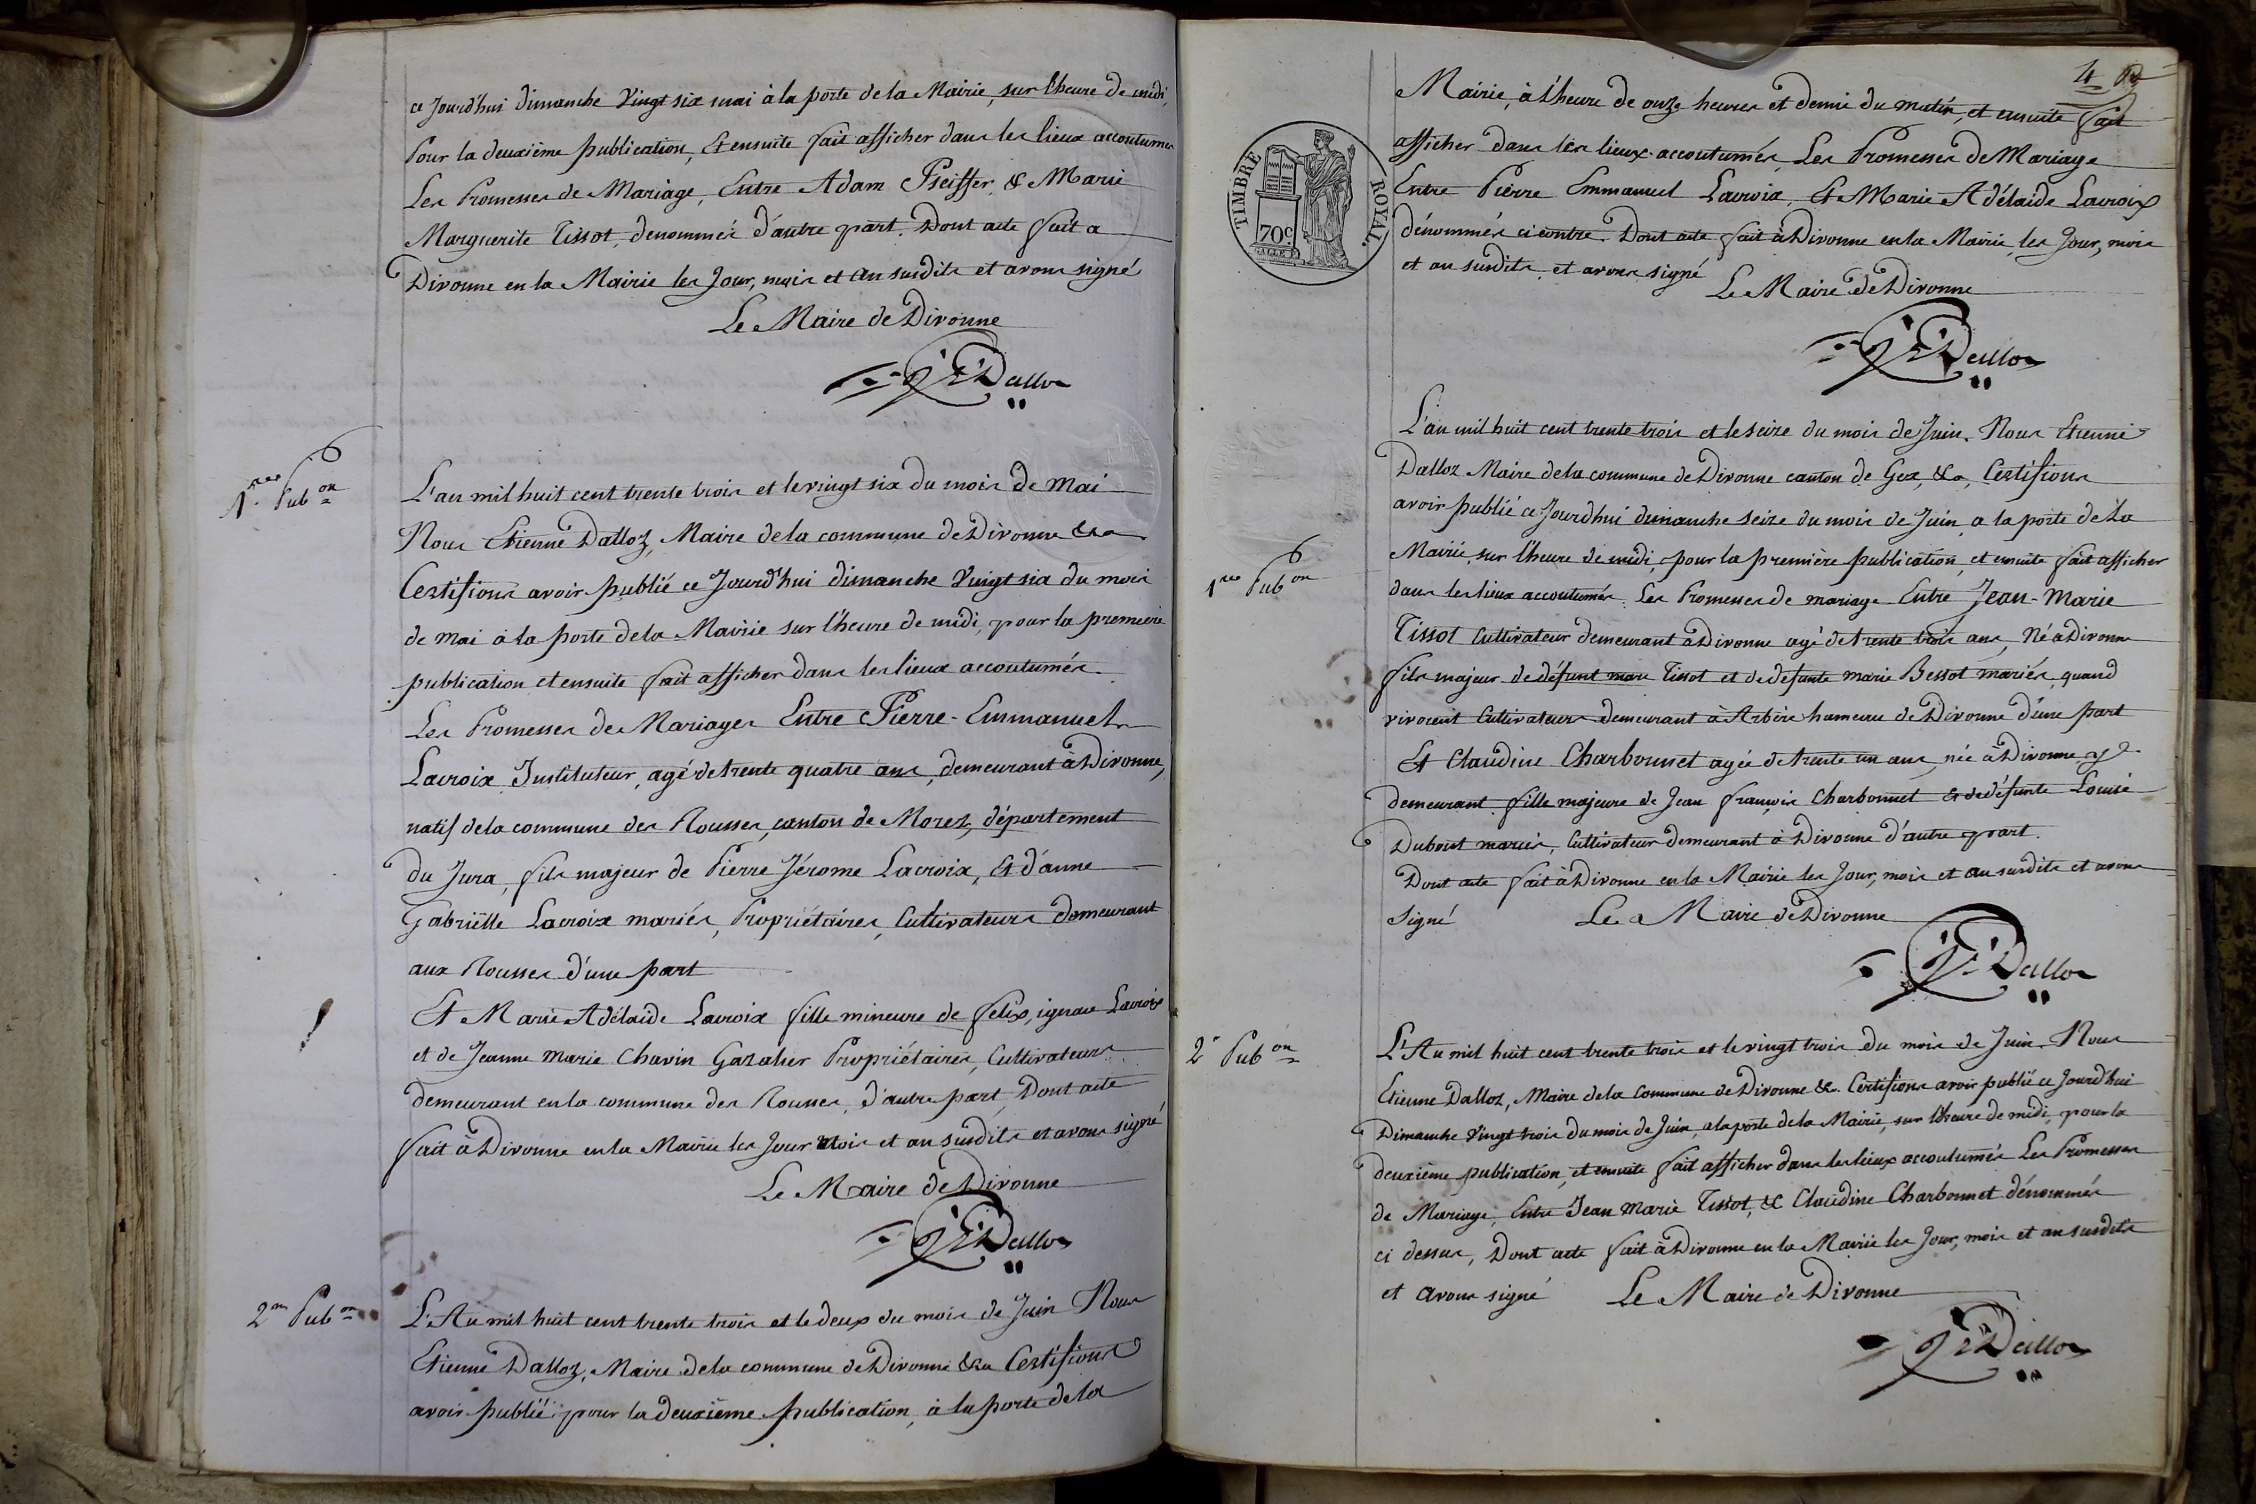 ce Jourd'hui dimanche Vingt six mai à la porte de la Mairie, sur l'heure de midi,
Pour la deuxième publication, Et ensuite fait afficher dans les lieux accoutumés
Les Promesses de Mariage, Entre Adam Pfeiffer & Marie
Marguerite Tissot, denommés d'autre part. Dont acte fait a
Divonne en la Mairie les Jour, mois et an susdits et avons signé
Le Maire de Divonne
Dalloz
1.re Pub.on
L'an mil huit cent trente trois et le vingt six du mois de Mai
Nous Etienne Dalloz, Maire de la commune de Divonne &a
Certifions avoir publié ce Jourd'hui dimanche Vingt six du mois
de mai à la porte de la Mairie sur l'heure de midi, pour la première
publication et ensuite fait afficher dans les lieux accoutumés.
Les Promesses de Mariages Entre Pierre-Emmanuel
Lacroix Instituteur, agé de trente quatre ans, demeurant à Divonne,
natif de la commune des Rousses, canton de Morez, département
du Jura, fils majeur de Pierre Jérome Lacroix, Et d'anne
Gabriëlle Lacroix mariés, Propriétaires, Cultivateurs demeurant
aux Rousses d'une part
Et Marie Adélaide Lacroix fille mineure de Felix, ignace Lacroix
et de Jeanne Marie Chavin Propriétaires, Cultivateurs
demeurant en la commune des Rousses, d'autre part, Dont acte
fait à Divonne en la Mairie les Jour mois et an susdits et avons signé
Le Maire de Divonne
Dalloz
2.me Pub.on
L'An mil huit cent trente trois et le deux du mois de Juin Nous
Etienne Dalloz, Maire de la commune de Divonne &a Certifions
avoir publié pour la deuxième publication, à la porte de la
4
Mairie, à l'heure de onze heures et demie du matin, et ensuite fait
afficher dans les lieux accoutumés Les Promesses de Mariage
Entre Pierre Emmanuel Lacroix, Et Marie Adélaide Lacroix
dénommés ci contre. Dont acte fait à Divonne en la Mairie les Jour, mois
et an susdits et avons signé
Le Maire de Divonne
TIMBRE ROYAL.
70c
Dalloz
L'an mil huit cent trente trois et le seize du mois de Juin. Nous Etienne
Dalloz Maire de la commune de Divonne canton de Gex, &a, Certifions
avoir publié ce Jourd'hui dimanche seize du mois de Juin a la porte de la
1re Pub.on
Mairie, sur l'heure de midi, pour la première publication, et ensuite fait afficher
dans les lieux accoutumés Les Promesses de mariage Entre Jean-Marie
Tissot Cultivateur demeurant à Divonne agé de trente trois ans, Né a Divonne
fils majeur de défunt marc Tissot et de defunte marie Bessot mariés, quand
vivoient Cultivateurs demeurant à Arbère hameau de Divonne d'une part
Et Claudine Charbonnet agée de trente un ans, née à Divonne y
demeurant fille majeure de Jean françois Charbonnet & de défunte Louise
Duboist mariés, Cultivateur demeurant à Divonne d'autre part.
Dont acte fait à Divonne en la Mairie les Jour, mois et an susdits et avons
Signé
Le Maire de Divonne
Dalloz
2e Pub.on
L'An mil huit cent trente trois et le vingt trois du mois de Juin. Nous
Etienne Dalloz, Maire de la Commune de Divonne &a Certifions avoir publié ce Jourd'hui
Dimanche Vingt trois du mois de Juin, a la porte de la Mairie, sur l'heure de midi, pour la
deuxième publication, et ensuite fait afficher dans les lieux accoutumés Les Promesses
de Mariage, Entre Jean Marie Tissot, & Claudine Charbonnet dénommés
ci dessus, Dont acte fait à Divonne en la Mairie les Jour, mois et an susdits
et avons signé
Le Maire de Divonne
Dalloz